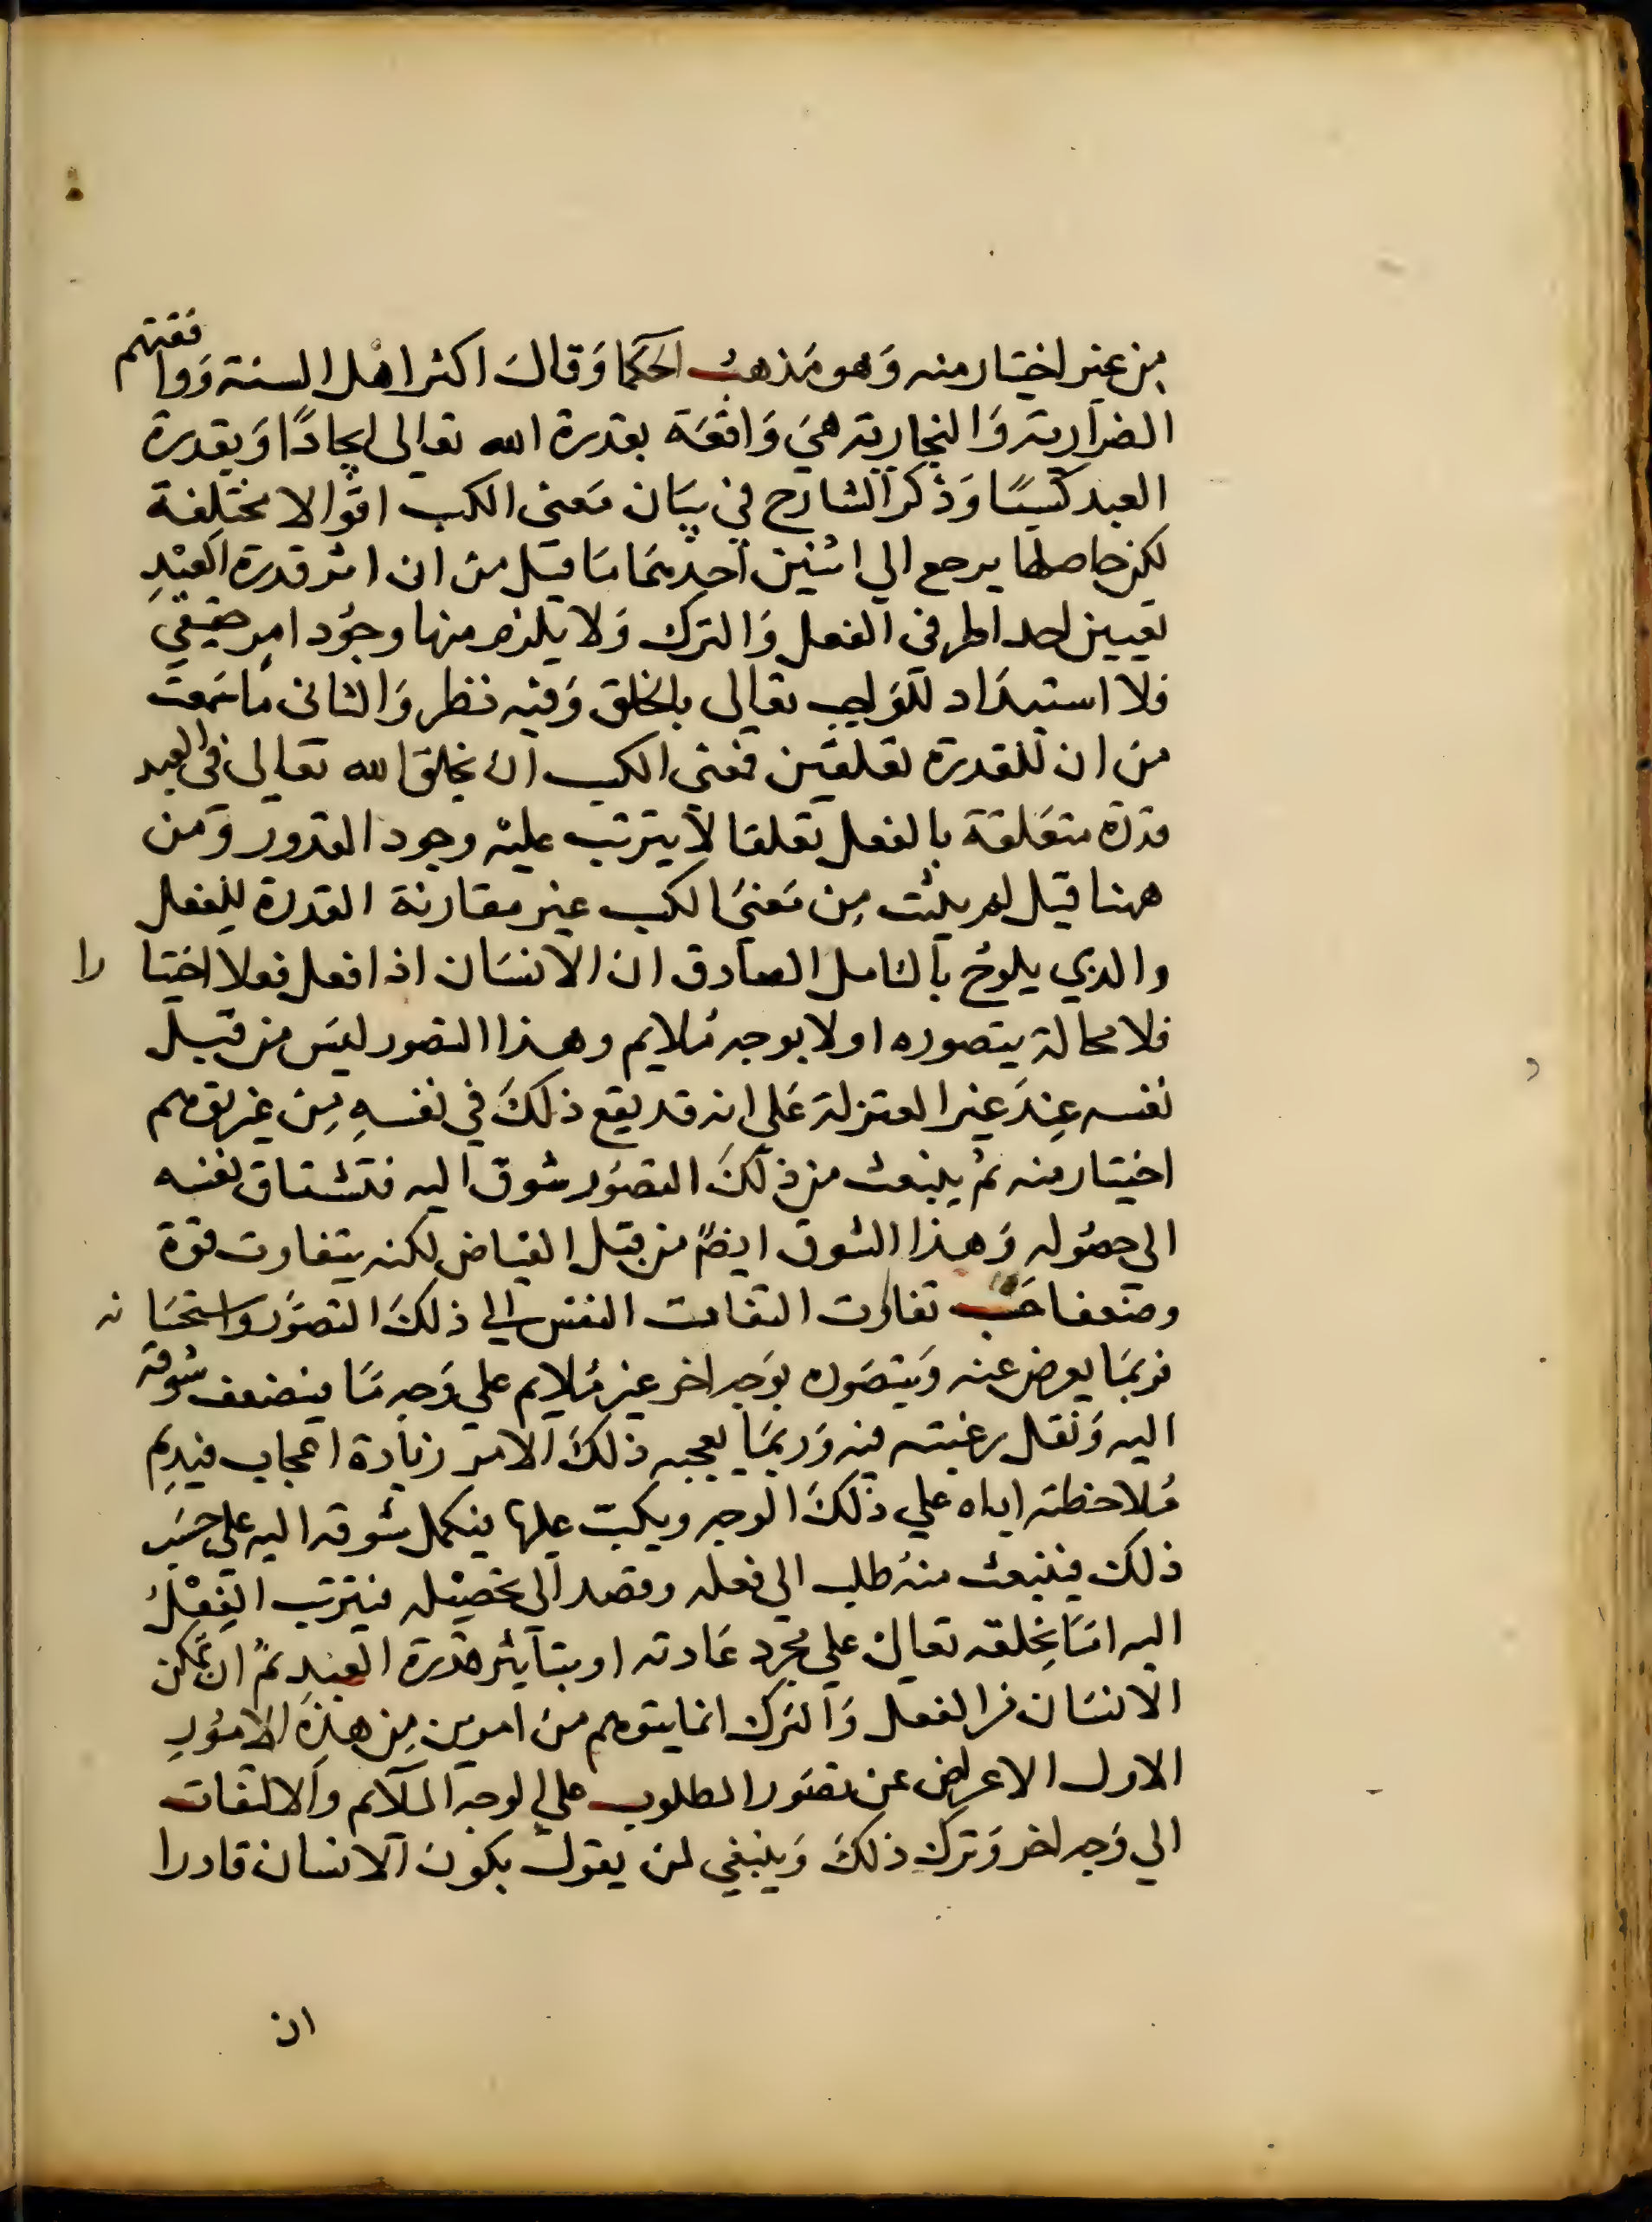 من غير اختيار منه وَهو مَذهبُ الحكما وَقال اكثر اهل السنة وَوافقتهم
الضرارية وَالنجارية هيَ وَاقعَة بقدرة الله تعالى ايجادًا وَبقدرة
العبد كسبًا وَذكر الشارح في بيَان مَعنى الكسب اقوالا مختلفة
لكن حاصلها يرجع الي اثنين احدهمَا مَا قيل من ان اثر قدرة العَبْدِ
تعيين احد الطرفى الفعل وَالترك وَلا يلزم منها وجوُد امرٍ حقيقي
فلا استبدَاد للوَاجب تعالى بالخلق وَفيه نظر وَالثانى مَا سَمعتَ
من ان للقدرة تعلقين فمعنى الكسب ان يخلق الله تعالى فى العبد
قدرة متعَلقة بالفعل تعلقا لا يترتب عليْه وجود المقدور وَمن
ههنا قيل لم يثبت مِن مَعنىَ الكسب غير مقارنة القدرة للفعل
والذي يلوحُ بالتامل الصادق ان الانسَان اذا فعل فعلا اختيارا
فلا محالة يتصوره اولا بوجه مُلايم وهذا التصور ليسَ من قبل
نفسه عِندَ غير المعتزلة عَلي انه قد يقع ذلكَ في نفسهِ مِن غير توهم
اختيار منه ثمُ ينبعث من ذلكَ التصوُر شوق اليه فتشتاق نفسه
الي حصُوله وَهذا الشوق ايضًا من قبل الفياض لكنه يتفاوت قوة
وضعفا حَسب تفاوت التفات النفس الي ذلكَ التصوَر واستحسَانه
فربمَا يعرض عنه وَيتصَوره بوَجه اخر غير مُلايم علي وَجه مَا فيضعف شوقه
اليه وَتقل رغبته فيه وَربمَا يعجبه ذلكَ الامر زيادة اعجاب فيديم
مُلاحظته اياه علي ذلكَ الوجه ويكبّ عليها فيكمل شوقه اليه على حسَب
ذلك فينبعث منهُ طلب الى فعله وقصد الى تحصيْله فيترتب الفِعْلُ
اليه امَا بخلقه تعالى علي مجرد عَادته او بتاثير قدرة العبد ثمّ ان تمكن
الانسَان من الفعل وَالترك انما يتوهم من امرين مِن هذِه الامُورِ
الاول الاعراض عن تصَور المطلوب على الوجه الملايم والالتفات
الي وَجه اخر وَترك ذلكَ وَينبغي لمن يقول بكون الانسان قادرا
ان